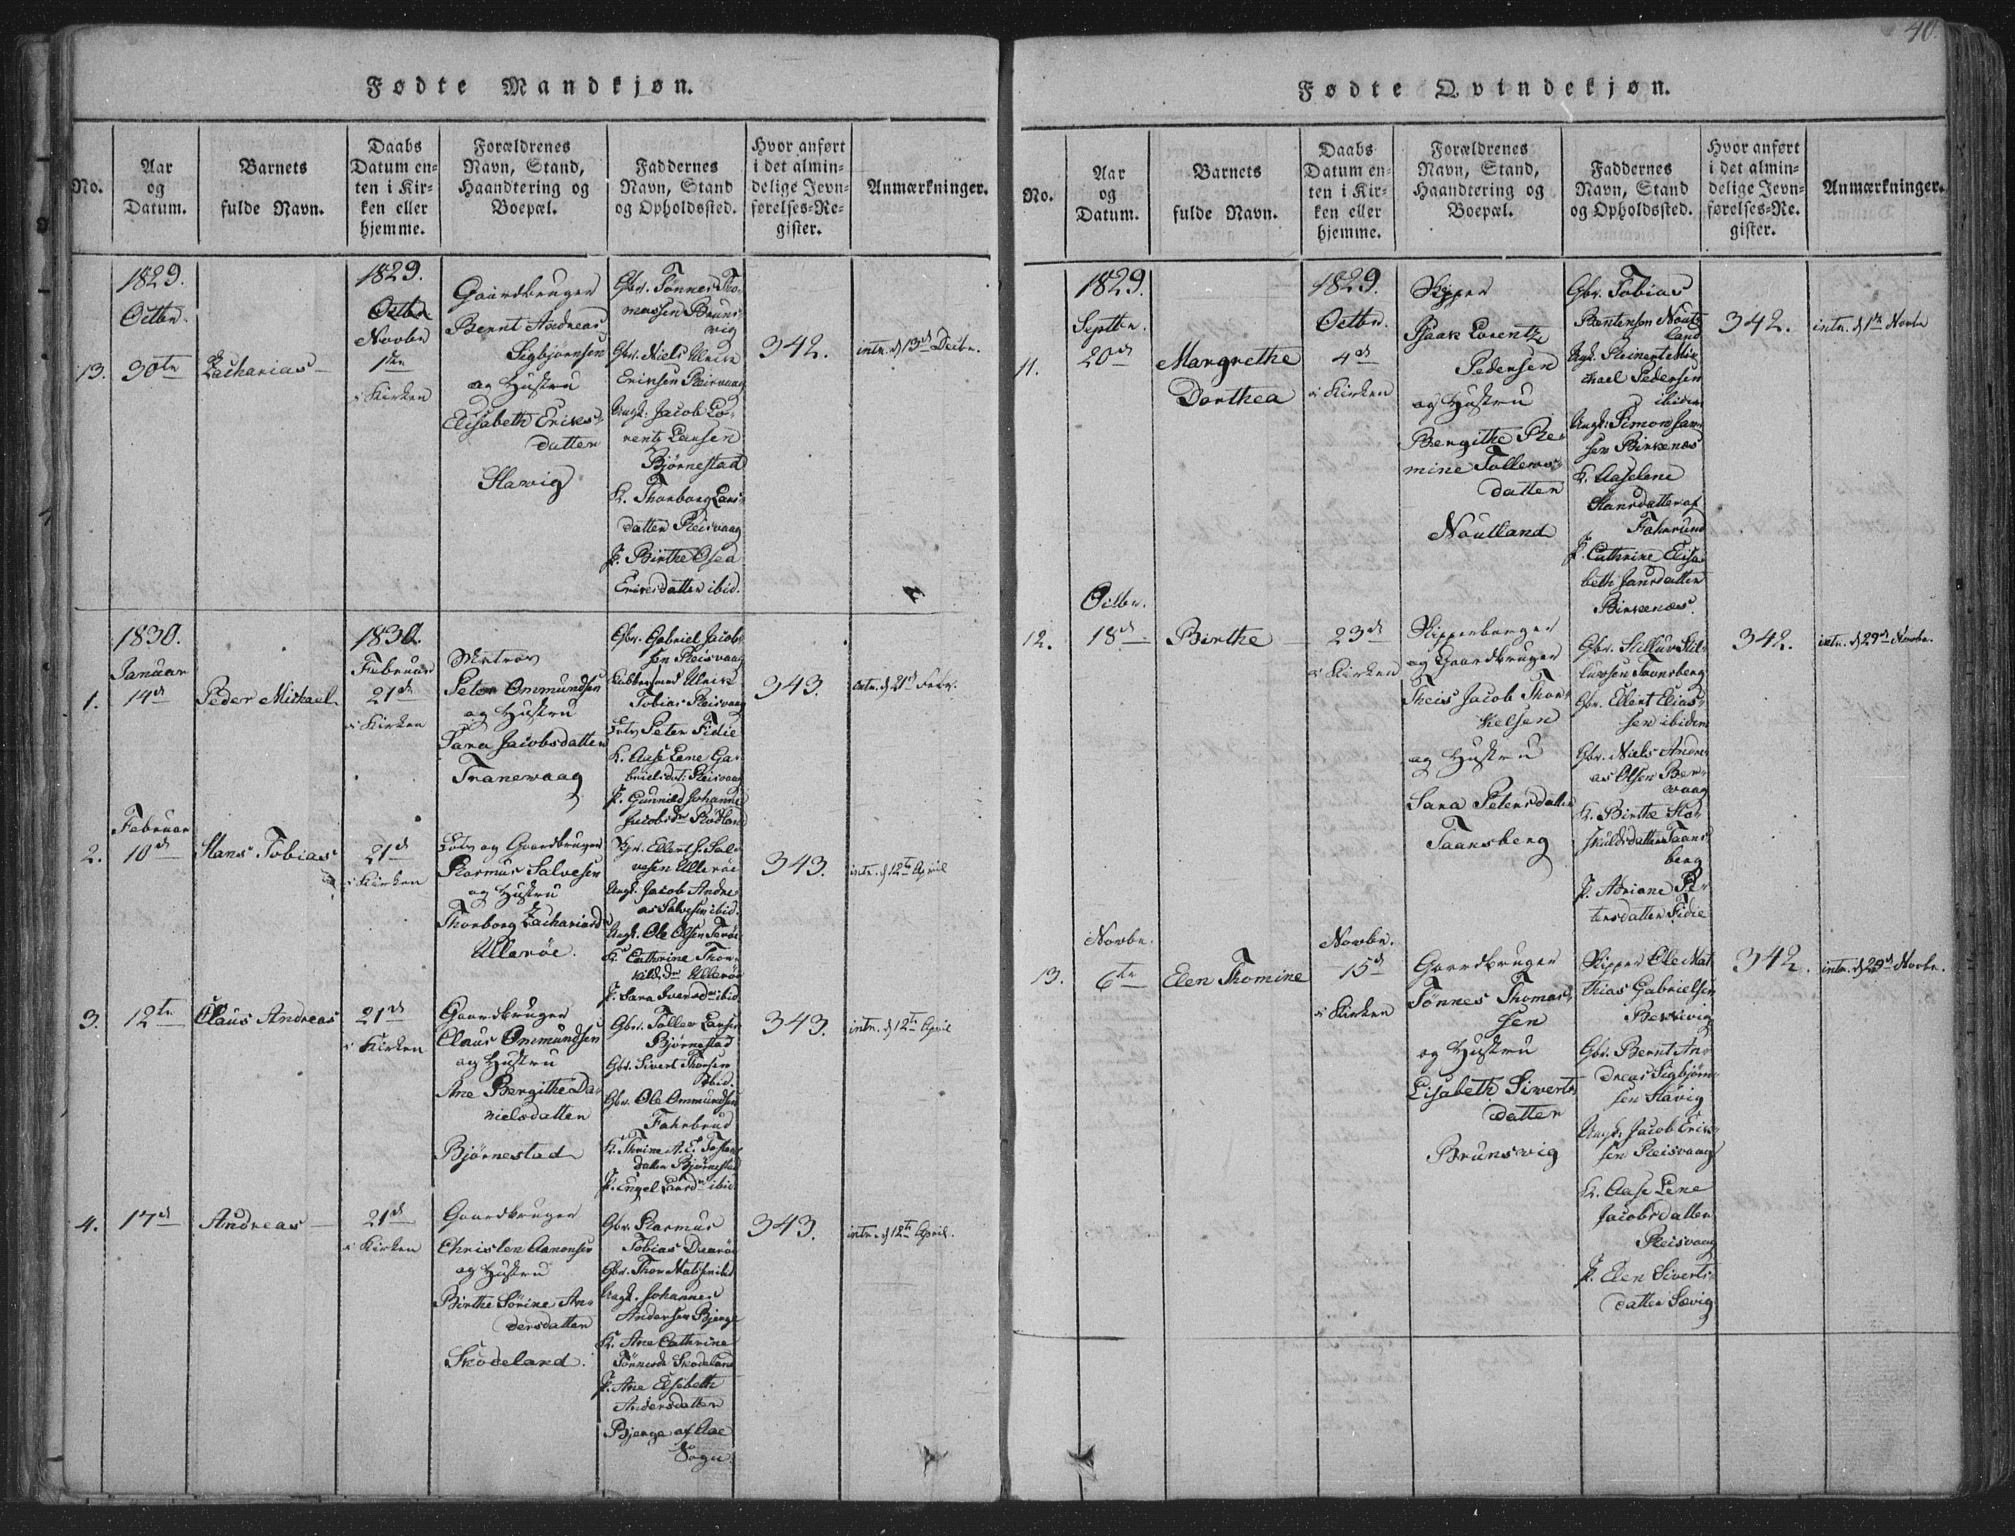 40.
Fødte Mandkjøn.
No.
Aar
og
Datum.
Barnets
fulde Navn.
Daabs
Datum en-
ten i Kir-
ken eller
hjemme.
Forældrenes
Navn, Stand,
Haandtering og
Boepæl.
Faddernes
Navn, Stand
og Opholdssted.
Hvor anført
i det almin-
delige Jevn-
førelses-Re-
gister.
Anmærkninger.
13.
1829.
Octbr.
30te
Zacharias
1829.
Octbr
Novbr
1ste
i Kirken
Gaardbruger
Bernt Andreas
Sigbjørnsen
og Hustru
Elisabeth Eriks-
datter
Starvig
Gbr. Tønnes Tho-
massen Bruns-
vig
Gbr. Niels Ulrik
Eriksen Reisvaag
Ungk. Jacob Lo-
rentz Larsen
Bjørnestad
K. Thorborg Lars-
datter Reisvaag
P. Birthe Osea
Eriksdatter ibid.
342.
intr. d 13d Decbr.
1.
1830.
Januar
14d
Peder Michael
1830.
Februar
21d
i Kirken
Matros
Peter Ommundsen
og Hustru
Sara Jacobsdatter
Tranevaag
Gbr. Gabriel Jacob-
sen Reisvaag
Ulrik
Tobias Reisvaag
Lods Peter Fidie
K. Aase Lene Ga-
brielsdat: Reisvaag
P. Gunnild Johanne
Jacobsdr Rødland
343.
intr. d 21d Febr.
2.
Februar
10d
Hans Tobias
21d
i Kirken
Lods og Gaardbruger
Rasmus Salvesen
og Hustru
Thorborg Zachariasdr
Ullerøe.
Gbr. Ellert S. Sal-
vesen Ullerøe
Ungk. Jacob Andre-
as Salvesen ibid.
Ungk. Ole Olsen
K. Cathrine Thor-
kildsdr Ullerøe
P. Sara Iversdr ibid.
343.
intr. d 12te April
3.
12te
Claus Andreas
21d
i Kirken
Gaardbruger
Claus Ommundsen
og Hustru
Ane Bergithe Da-
nielsdatter
Bjørnestad
Gbr. Tollev Larsen
Bjørnestad
Gbr. Sivert Thorsen
ibid.
Gbr. Ole Ommundsen
Fahrbrud
K. Thrine A. E. Tostens
datter Bjørnestad
P. Engel Larsdr ibid.
343.
intr. d 12te April
4.
17d
Andreas
21d
i Kirken
Gaardbruger
Christen Aanonsen
og Hustru
Birthe Sørine An-
dersdatter
Skodeland.
Gbr. Rasmus
Tobias
Gbr. Thor Matisen ibid
Ungk. Johannes
Andersen Bjerge
K. Ane Cathrine
Tønnesdr Skodeland
P. Ane Elsebeth
Andersdatter
Bjerge af Aae
Sogn.
343.
intr. d 12te April.
Fødte Qvindekjøn.
No.
Aar
og
Datum.
Barnets
fulde Navn.
Daabs
Datum en-
ten i Kir-
ken eller
hjemme.
Forældrenes
Navn, Stand,
Haandtering og
Boepæl.
Faddernes
Navn, Stand
og Opholdssted.
Hvor anført
i det almin-
delige Jevn-
førelses-Re.
gister.
Anmærkninger.
11.
1829.
Septbr.
20d
Margrethe
Dorthea
1829.
Octbr.
4d
i Kirken
Skipper
Isaak Lorentz
Pedersen
og Hustru
Bergithe Re-
mine Tollevs-
datter
Noutland
Gbr. Tobias
Berntensen Nout-
land
Ungk. Reinert Mik-
kael Pedersen
ibidem
Ungk: Simon Jan-
sen Birkenæs
K. Aaselene
Hansdatter af
Fahrsund
P. Cathrine Elisa-
beth Jansdatter
Birkenæs.
342.
intr. d 1ste Novbr
12.
Octbr.
18d
Birthe
23d
i Kirken
Skipperborger
og Gaardbruger
Theis Jacob Thor-
kelsen
og Hustru
Sara Petersdatter
Taansberg
Gbr. Stilluv Stil-
luvsen Taansberg
Gbr. Ellert Elias-
sen ibidem
Gbr. Niels Andre-
as Olsen Ber-
vaag
K. Birthe Ros-
skuldsdatter Taans-
berg
P. Adriane Pe-
tersdatter Fidie
342.
intr. d 29d Novbr.
13.
Novbr.
6te
Elen Thomine
Novbr.
15d
i Kirken
Gaardbruger
Tønnes Thomas-
sen
og Hustru
Lisabeth Siverts-
datter
Brunsvig
Skipper Ole Mat-
thias Gabrielsen
Berrvig
Gbr. Bernt An-
dreas Sigbjørn-
sen Stavig
Ungk: Jacob Erik-
sen Reisvaag
K. Aase Lene
Jacobsdatter
Reisvaag
P. Elen Siverts-
datter Sævig
342.
intr. d 29d Novbr.